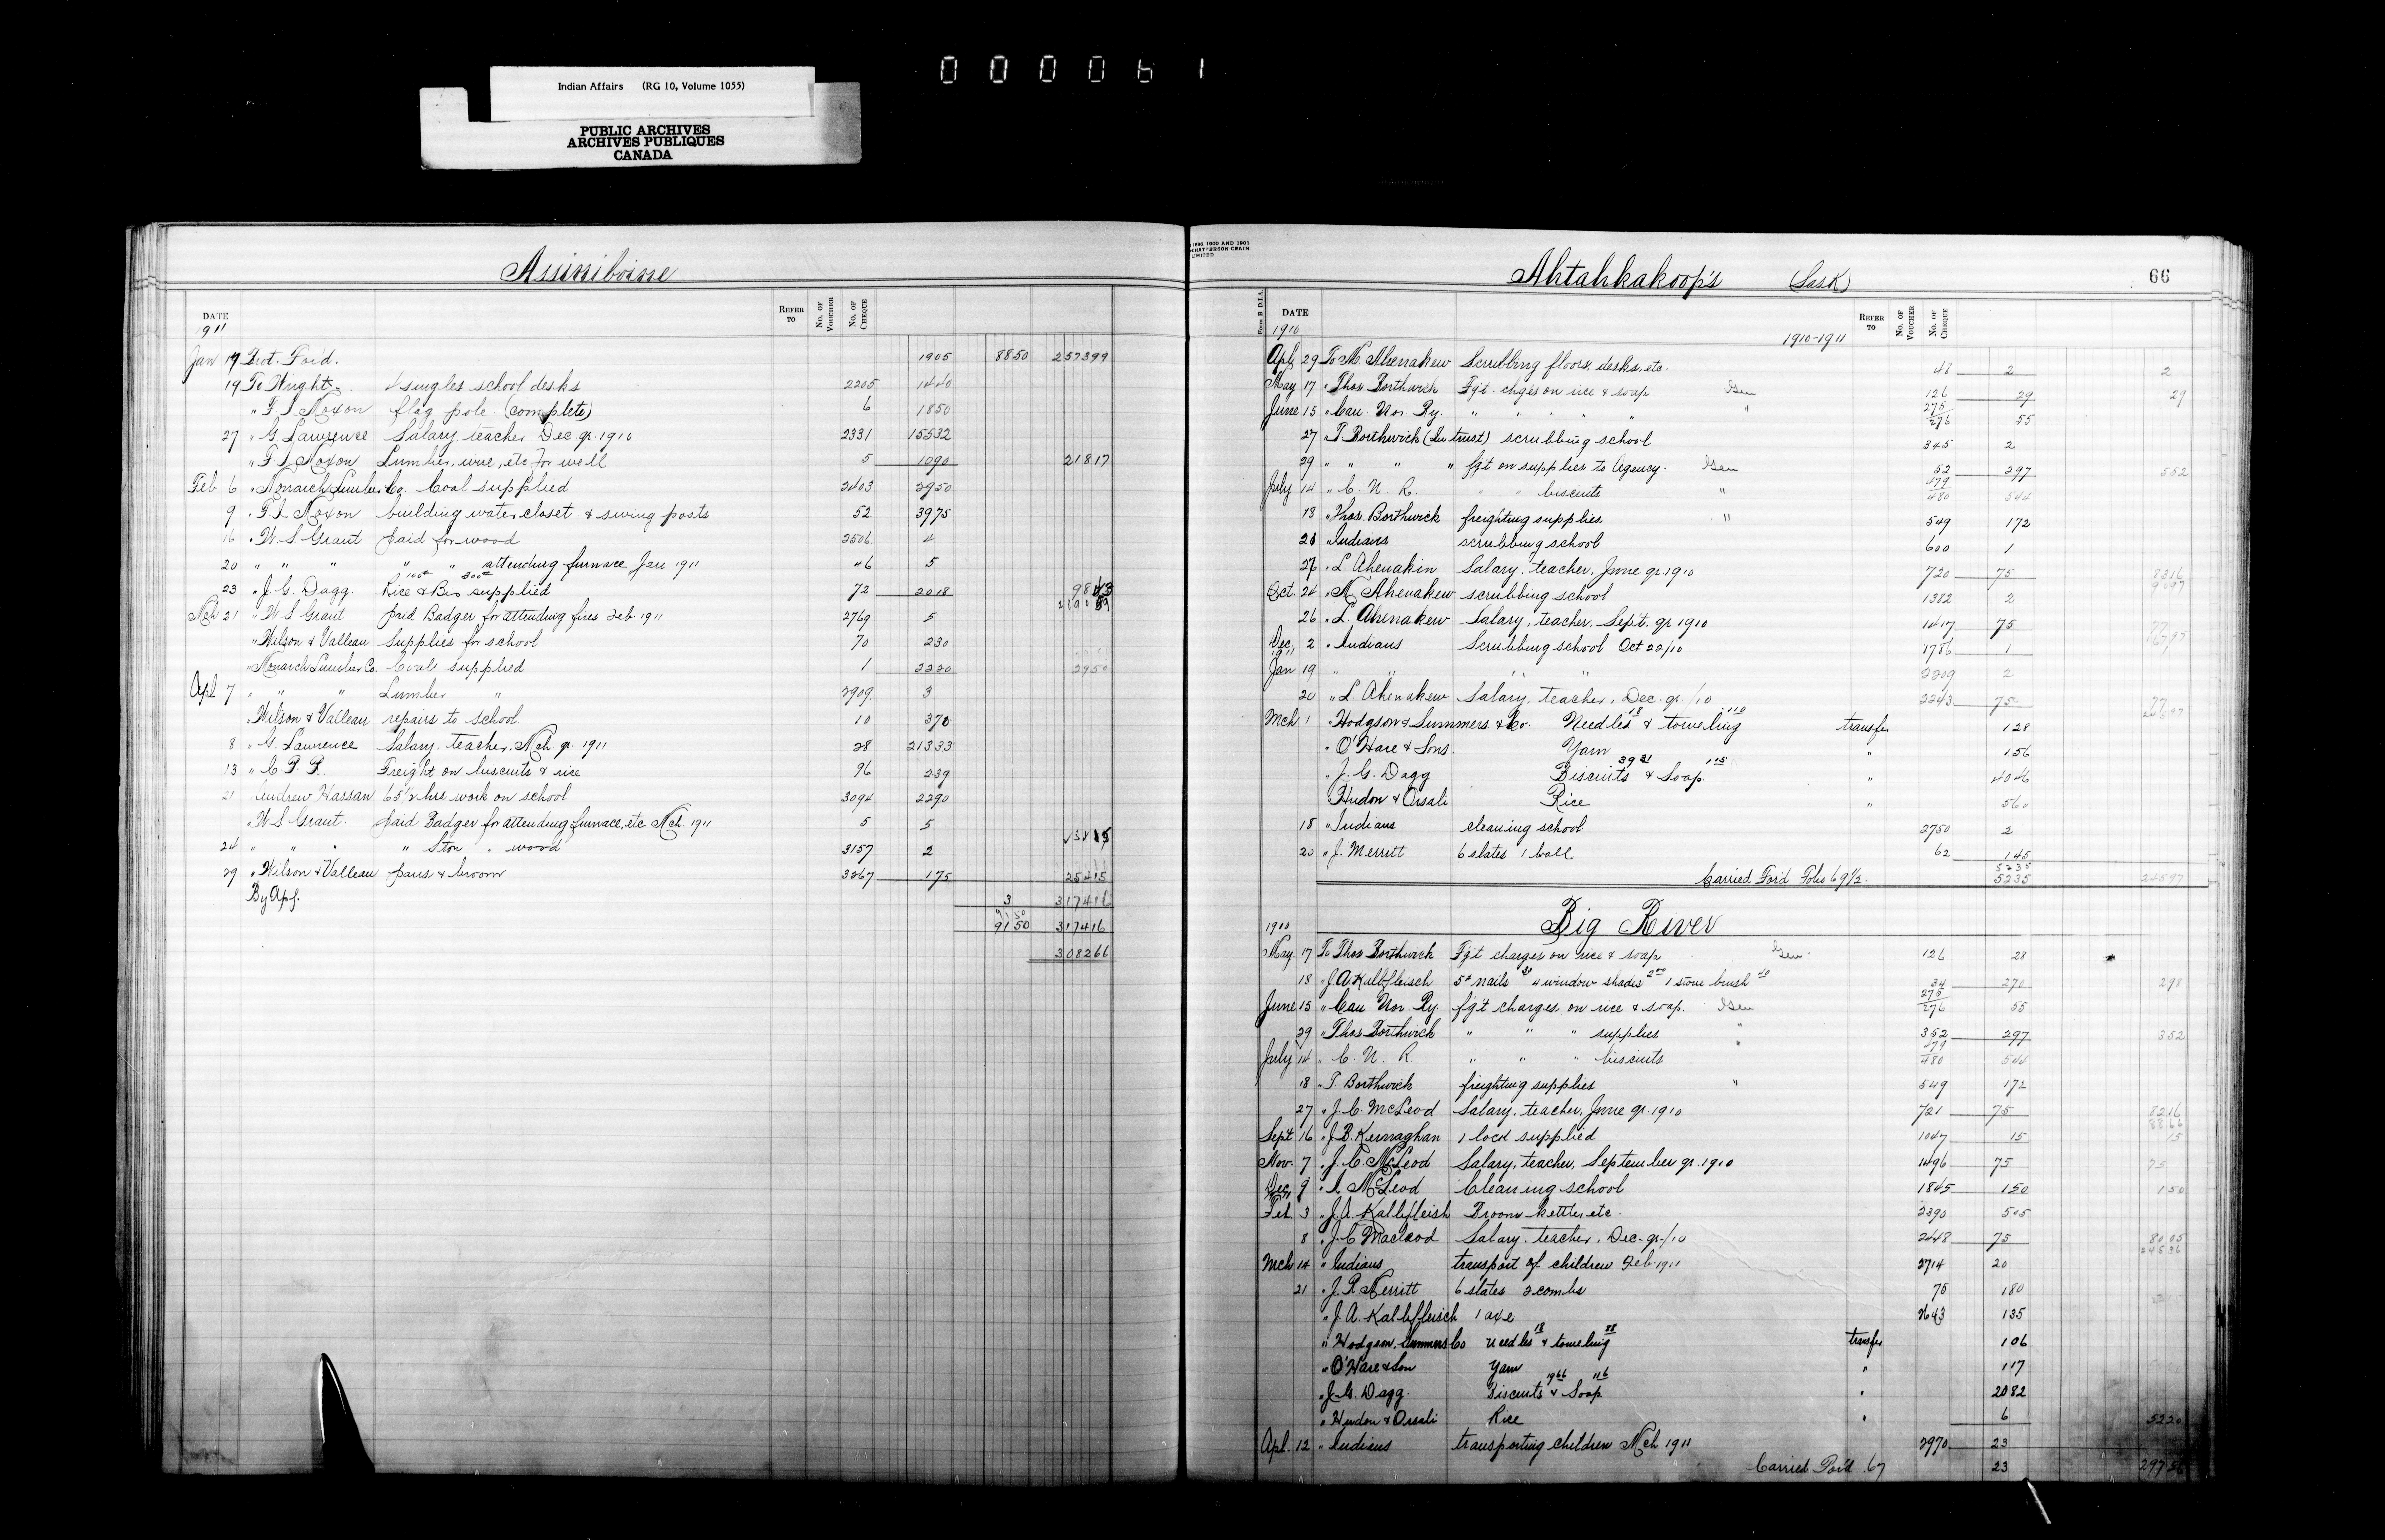 000061
Indian Affairs (RG 10, Volume 1055)
PUBLIC ARCHIVES
ARCHIVES PUBLIQUES
CANADA
Assiniboine
DATE REFER TO No. OF VOUCHER No. OF CHEQUE
1911
Jan 19 Brot. For'd. 1905 8850 257399
19 To Wright 4 singles school desks 2205 1440
" F. L. Moxon flag pole (complete) 6 1850
27 " G Lawrence Salary, teacher Dec. qr. 1910 2331 15532
" F L Moxon Lumber, wire, etc for well 5 1090 21817
Feb 6 " Monarch Lumber Co. Coal supplied 2403 2950
9 " F. L. Moxon building water closet & swing posts 52 3975
16 " W. S. Grant paid for wood 2506 4
20 " " " " " attending furnace Jan 1911 46 5
23 " J. G. Dagg Rice & Bis supplied 72 2018
Mch 21 " W S Grant paid Badger for attending fires Feb. 1911 2769 5
" Wilson & Valleau Supplies for school 70 230
" Monarch Lumber Co. Coal supplied 1 2220 2950
Apl 7 " " " Lumber " 2909 3
" Wilson & Valleau repairs to school 10 370
8 " G. Lawrence Salary, teacher, Mch. qr. 1911 28 21333
13 " C. P. R. Freight on biscuits & rice 96 239
21 Andrew Hassan 65½ hrs work on school 3094 2290
" W S Grant. paid Badger for attending furnace, etc Mch. 1911 5 5
24 " " " " 5 ton " wood 3157 2
29 " Wilson & Valleau pans & broom 3267 175 25415
By Ap'l. 3 317416
9150
9150 317416
308266
1896, 1900 AND 1901
CHATTERSON-CRAIN
LIMITED
Ahtahkakoop's (Sask) 66
Form B D.I.A. DATE REFER TO No. OF VOUCHER No. OF CHEQUE
1910 1910-1911
Apl. 29 To M. Ahenakew Scrubbing floors, desks, etc. 48 2 2
May 17 " Thos Borthwick Fgt. chges on rice & soap Gen 126 29 29
June 15 " Can. Nor. Ry. " " " " " 275 276 55
27 " T. Borthwick (In trust) scrubbing school 345 2
29 " " " " fgt on supplies to Agency. Gen 52 297 552
July 14 " C. N. R. " " biscuits " 479 480 544
18 " Thos. Borthwick freighting supplies " 549 172
20 " Indians scrubbing school 600 1
26 " L. Ahenakin Salary, teacher, June qr. 1910 720 75
Oct. 24 " M Ahenakew scrubbing school 1382 2
26 " L. Ahenakew Salary, teacher, Sept. qr 1910 1417 75
Dec. 2 " Indians Scrubbing school Oct 22/10 1786 1
1911
Jan 19 " " " " 2209 2
20 " L. Ahenakew Salary, teacher, Dec. qr. /10 2243 75
Mch 1 " Hodgson Summers & Co. Needles 18 & toweling 110 transfer 128
" O'Hare & Sons Yarn " 156
" J. G. Dagg Biscuits 3931 & Soap 115 " 4046
" Hudon & Orsali Rice " 560
18 " Indians cleaning school 2750 2
20 " J. Merritt 6 slates 1 ball 62 145
5235
Carried For'd Folio 69½. 5235 24597
Big River
1910
May. 17 To Thos Borthwick Fgt charges on rice & soap Gen. 126 28
18 " J. A. Kalbfleisch 5# nails 4 window shades 200 1 stove brush 40 34 270 298
June 15 " Can Nor. Ry fgt charges on rice & soap. Gen 275 276 55
29 " Thos Borthwick " " " supplies " 352 297 352
July 14 " C. N. R " " " biscuits " 479 480 544
18 " T. Borthwick freighting supplies " 549 172
27 " J. C. McLeod Salary, teacher, June qr. 1910 721 75 8216
Sept 16 " J. B. Kernaghan 1 lock supplied 1047 15 15
Nov. 7 " J. C. McLeod Salary, teacher, September qr. 1910 1496 75 75
Dec. 9 " A McLeod Cleaning school 1845 150 150
Feb. 3 " J. A. Kalbfleish Broom kettles etc. 2390 505
8 " J. C Macleod Salary, teacher, Dec. qr. /10 2448 75 8005
Mch 14 " Indians transport of children Feb. 1911 2714 20
21 " J. R. Merritt 6 slates 2 combs 75 180
" J. A. Kalbfleisch 1 axe 2643 135
" Hodgson, Summers Co needles 18 & toweling 88 transfer 106
" O'Hare & Son Yarn " 117
" J. G. Dagg. Biscuits 1966 & Soap 116 " 2082
" Hudon & Orsali Rice " 6 5220
Apl. 12 " Indians transporting children Mch 1911 2970 23
Carried For'd. 67 23 29756